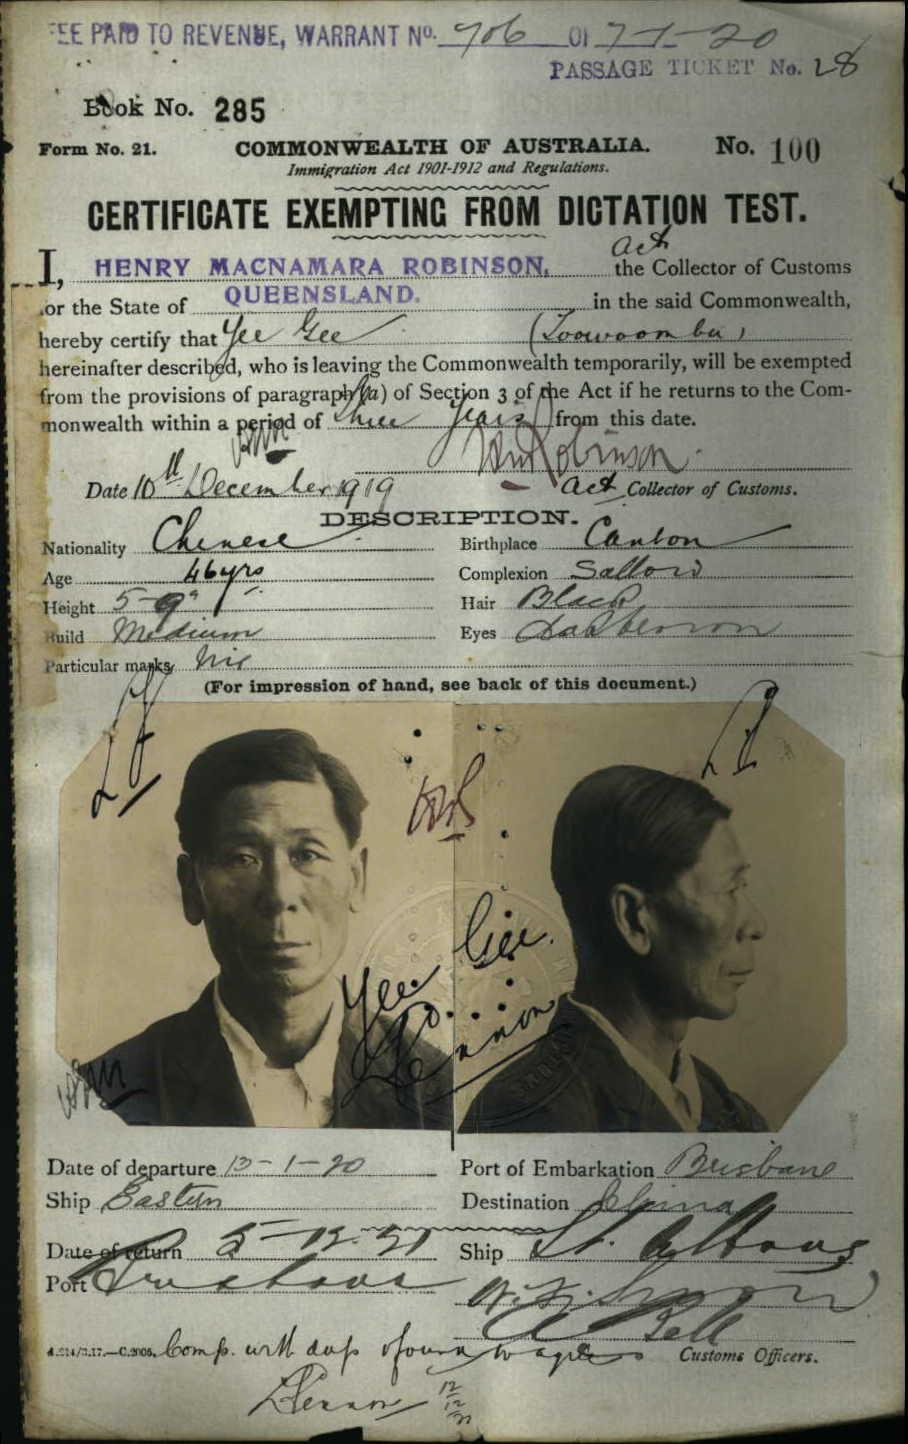 FEE PAID TO REVENUE, WARRANT No. 706 OF 7-1-20
PASSAGE TICKET No. 28
Book No. 285
Form No. 21. COMMONWEALTH OF AUSTRALIA. No. 100
Immigration Act 1901-1912 and Regulations.
CERTIFICATE EXEMPTING FROM DICTATION TEST.
act
I, HENRY MACNAMARA ROBINSON, the Collector of Customs
for the State of QUEENSLAND. in the said Commonwealth,
hereby certify that Yee Gee (Toowoomba)
hereinafter described, who is leaving the Commonwealth temporarily, will be exempted
from the provisions of paragraph (a) of Section 3 of the Act if he returns to the Com-
monwealth within a period of three years from this date.
HM Robinson
Date 10th December 1919 Act Collector of Customs.
DESCRIPTION.
Nationality Chinese Birthplace Canton
Age 46yrs Complexion Sallow
Height 5-9" Hair Black
Build Medium Eyes dark brown
Particular marks Nil
(For impression of hand, see back of this document.)
Yee Gee.
D. Lennon
Date of departure 13-1-20 Port of Embarkation Brisbane
Ship Eastern Destination China
Date of return 5-12-21 Ship St. Albans
Port Brisbane
Bell
Comp. with dup. found to agree Customs Officers.
DLennon 12/12/21